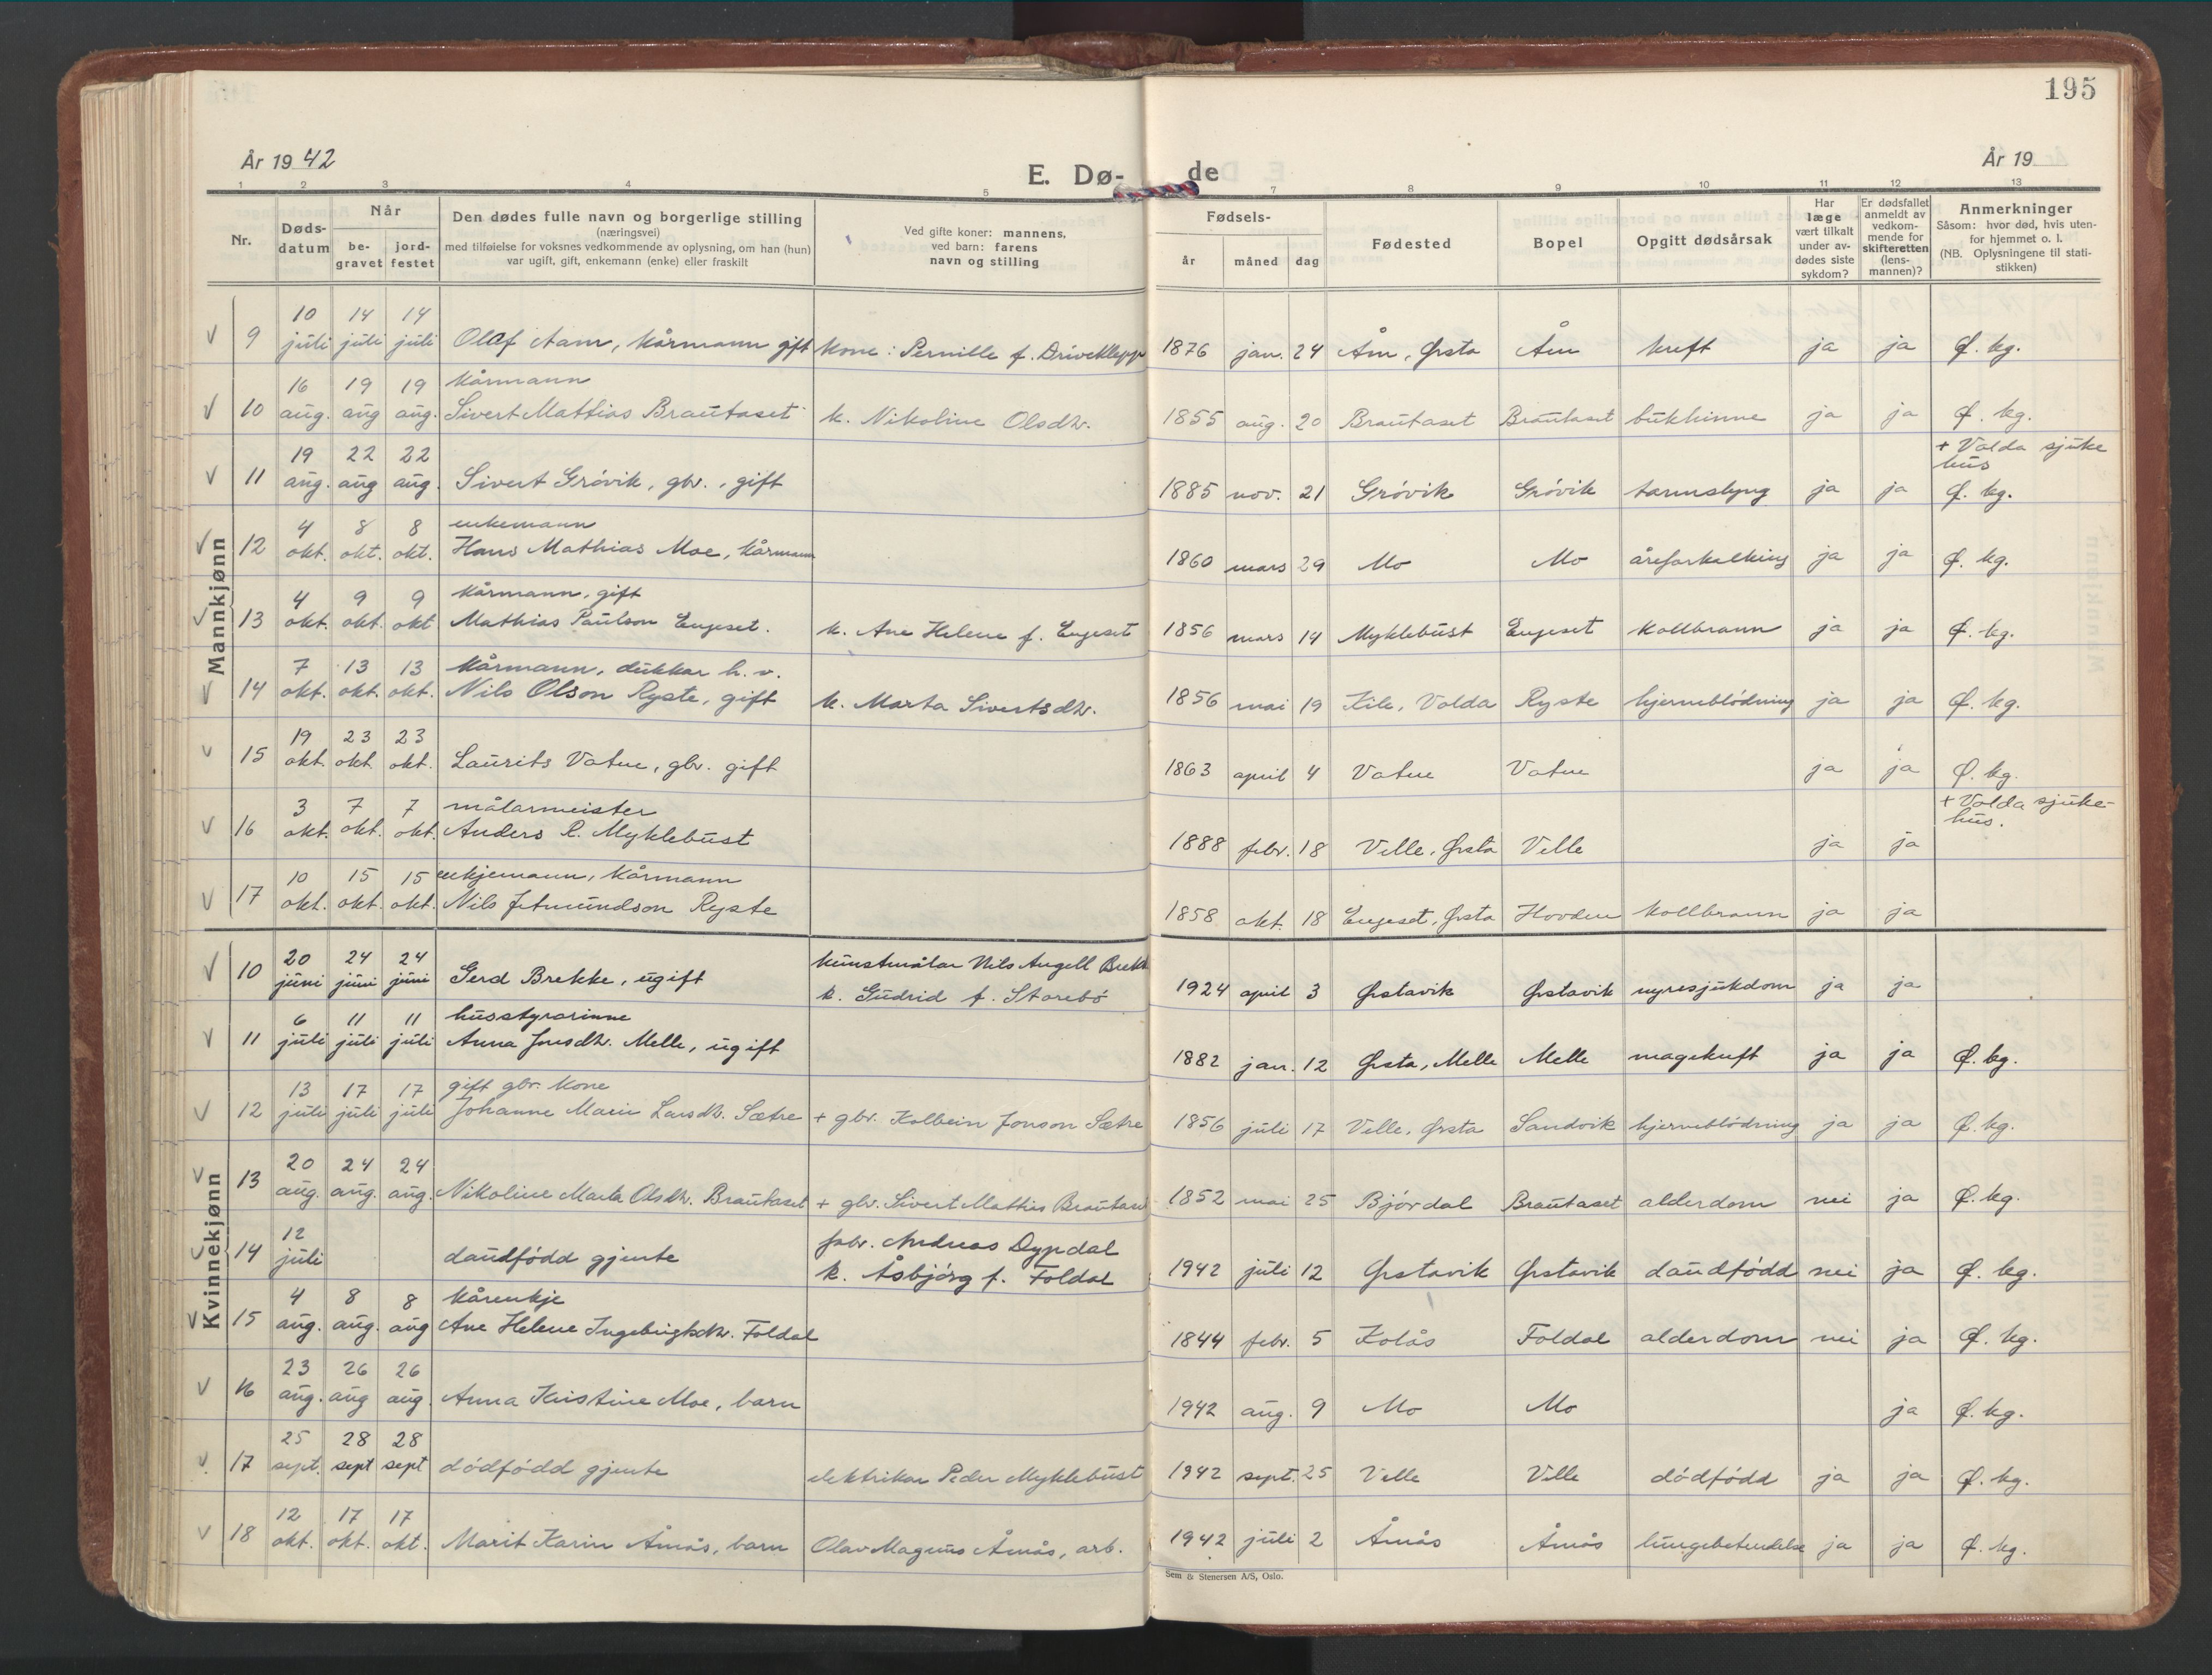 195
År 1942
E. Dø-
de
År 19
1 2 3 4 5 7 8 9 10 11 12 13
Nr.
Døds-
datum
Når
be-
gravet
jord-
festet
Den dødes fulle navn og borgerlige stilling
(næringsvei)
med tilføielse for voksnes vedkommende av oplysning, om han (hun)
var ugift, gift, enkemann (enke) eller fraskilt
Ved gifte koner: mannens,
ved barn: farens
navn og stilling
Fødsels-
år måned dag
Fødested
Bopel
Opgitt dødsårsak
Har
læge
vært tilkalt
under av-
dødes siste
sykdom?
Er dødsfallet
anmeldt av
vedkom-
mende for
skifteretten
(lens-
mannen)?
Anmerkninger
Såsom: hvor død, hvis uten-
for hjemmet o. l.
(NB. Oplysningene til stati-
stikken)
Mannkjønn
10 14 14
9 juli juli juli Olaf Aam, kårmann gift kone: Pernille f. Driveklepp 1876 jan. 24 Åm, Ørsta Åm kreft ja ja Ø. kg.
16 19 19 kårmann
10 aug. aug aug. Sivert Mathias Brautaset k. Nikoline Olsdtr. 1855 aug. 20 Brautaset Brautaset bukhinne ja ja Ø. kg.
19 22 22 + Volda sjuke
hus
11 aug. aug aug. Sivert Gróvik, gbr., gift 1885 nov. 21 Gróvik Gróvik tarmslyng ja ja Ø. kg.
4 8 8 enkemann
12 okt. okt. okt. Hans Mathias Moe, kårmann 1860 mars 29 Mo Mo åreforkalking ja ja Ø. kg.
4 9 9 kårmann, gift
13 okt. okt. okt Mathias Paulson Engeset. k. Ane Helene f. Engeset 1856 mars 14 Myklebust Engeset kollbrann ja ja Ø. kg.
7 13 13 kårmann, dukkar h. v.
14 okt. okt. okt. Nils Olson Ryste, gift k. Marta Sivertsdtr. 1856 mai 19 Kile, Volda Ryste hjerneblódning ja ja Ø. kg.
19 23 23
15 okt. okt. okt. Laurits Vatne, gbr. gift 1863 april 4 Vatne Vatne ja ja Ø. kg.
3 7 7 målarmeister + Volda sjuke-
hus.
16 okt. okt. okt. Anders R. Myklebust 1888 febr. 18 Velle, Ørsta Velle ja ja
10 15 15 enkjemann, kårmann
17 okt. okt. okt. Nils Jetmundson Ryste 1858 okt. 18 Engeset, Ørsta Hovden kollbrann ja ja
Kvinnekjønn
20 24 24 kunstmålar Nils Angell Brekk
10 juni juni juni Gerd Brekke, ugift k. Gudrid f. Storebó 1924 april 3 Ørstavik Ørstavik nyresjukdom ja ja
6 11 11 husstyrarinne
11 juli juli juli Anna Jonsdtr. Melle, ugift 1882 jan. 12 Ørsta, Melle Melle magekreft ja ja Ø. kg.
13 17 17 gift gbr. kone
12 juli juli juli Johanne Marie Larsdtr. Sætre + gbr. Kolbein Jonson Sætre 1856 juli 17 Velle, Ørsta Sandvik hjerneblódning ja ja Ø. kg.
20 24 24
13 aug. aug. aug. Nikoline Marta Olsdtr. Brautaset + gbr. Sivert Mathias Brautaset 1852 mai 25 Bjórdal Brautaset alderdom nei ja Ø. kg.
12 fabr. Andreas Dypdal
14 juli daudfódd gjente k. Åsbjórg f. Foldal 1942 juli 12 Ørstavik Ørstavik daudfódd nei ja Ø. kg.
4 8 8 kårenkje
15 aug. aug. aug Ane Helene Ingebrigtsdtr. Foldal 1844 febr. 5 Kolås Foldal alderdom nei ja Ø. kg.
23 26 26
16 aug. aug aug. Anna Kristine Moe, barn 1942 aug. 9 Mo Mo ja Ø. kg.
25 28 28
17 sept. sept sept dódfódd gjente elektrikar Peder Myklebust 1942 sept. 25 Velle Velle dódfódd ja ja Ø. kg.
12 17 17
18 okt. okt. okt. Marit Karin Åmås, barn Olav Magnus Åmås, arb. 1942 juli 2 Åmås Åmås lungebetendelse ja ja Ø. kg.
Sem & Stenersen A/S, Oslo.